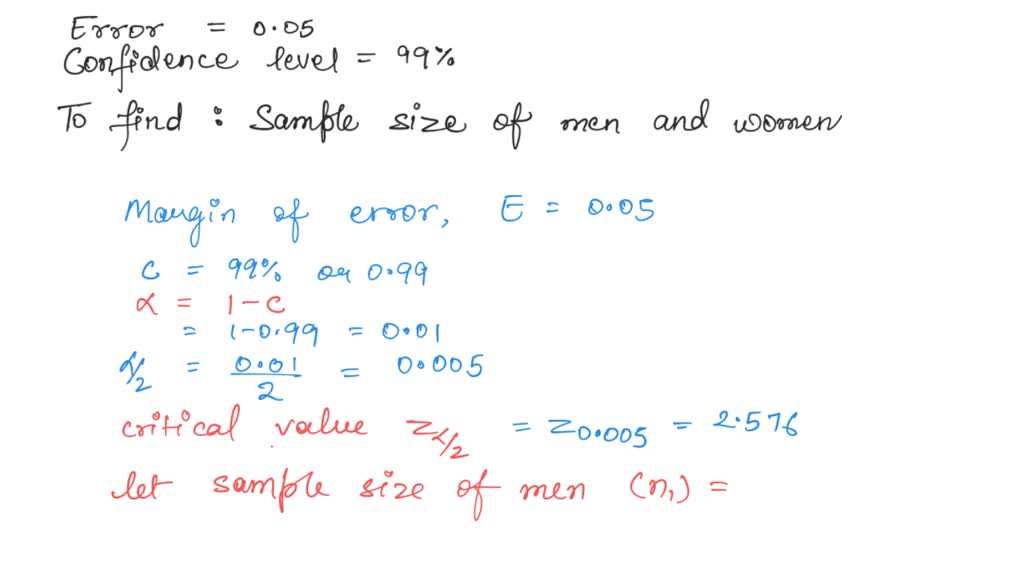 Error = 0.05
Confidence level = 99%
To find : Sample size of men and women
Margin of error, E = 0.05
C = 99% or 0.99
α = 1-C
= 1-0.99 = 0.01
α/2 = 0.01/2 = 0.005
critical value Zα/2 = Z0.005 = 2.576
let sample size of men (n1) =